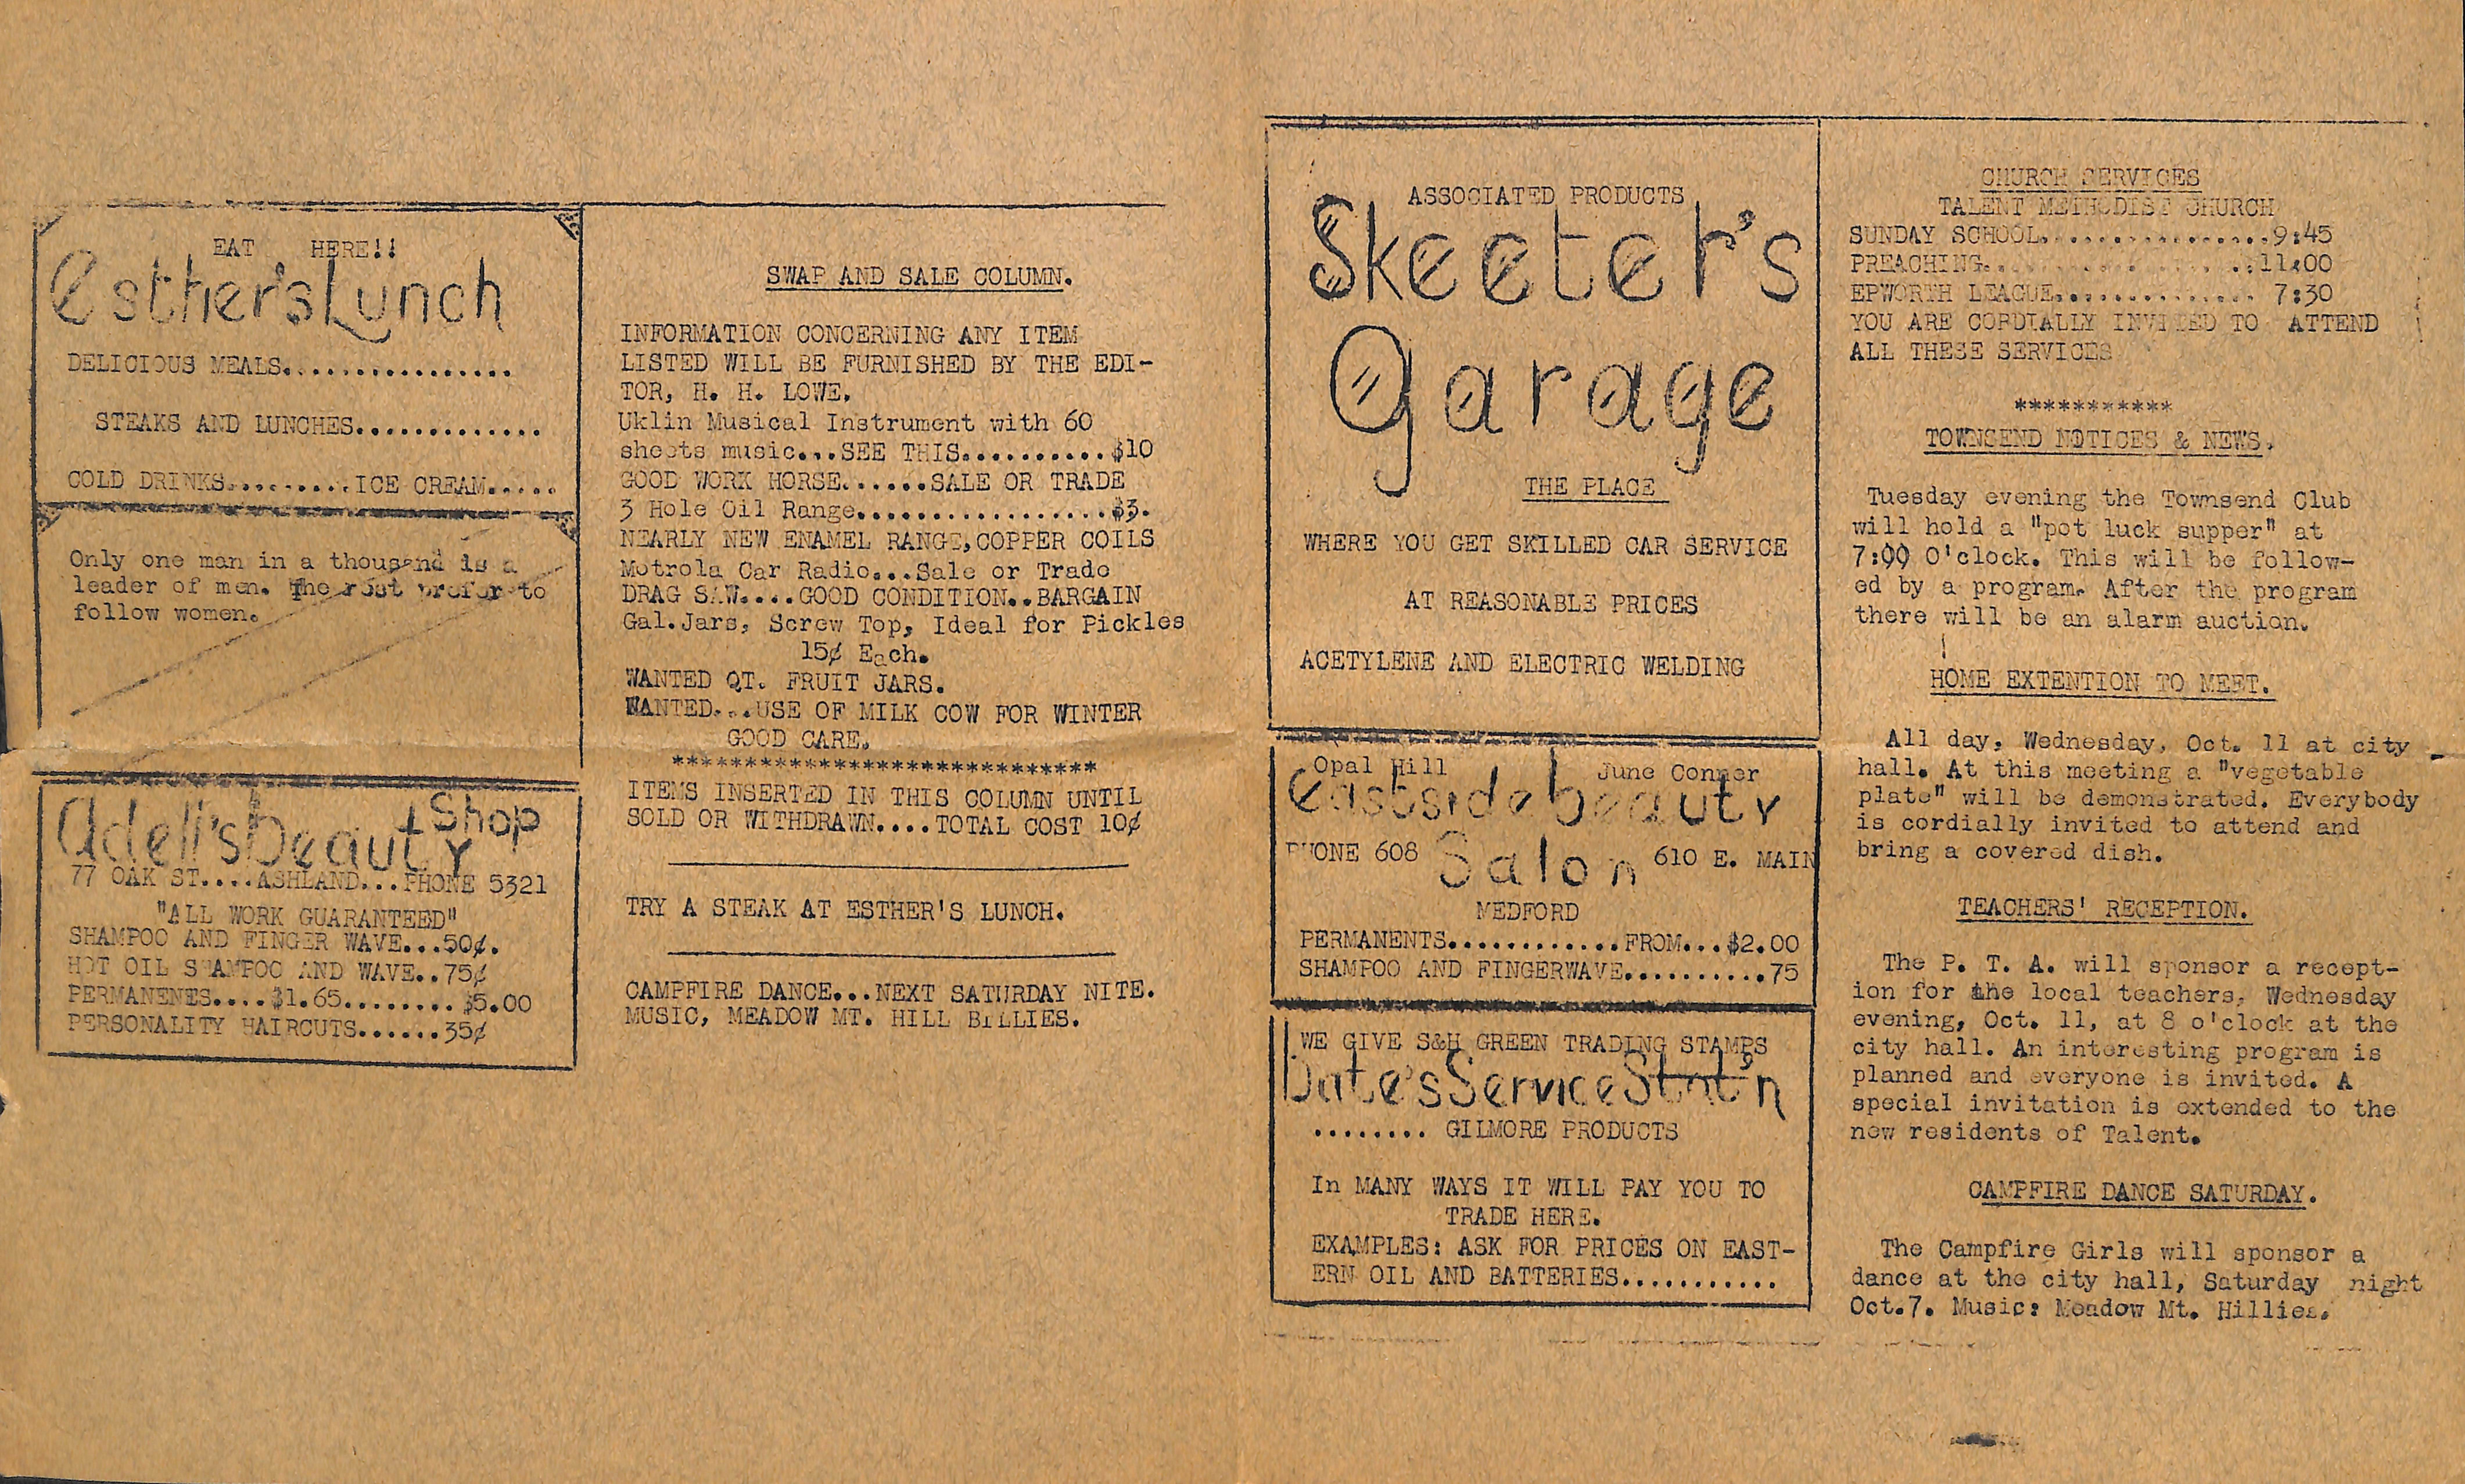 EAT HERE!!
Esther's Lunch
DELICIOUS MEALS................
STEAKS AND LUNCHES.............
COLD DRINKS.........ICE CREAM.....
Only one man in a thousand is a
leader of men. The rest prefer to
follow women.
Adell's beauty Shop
77 OAK ST....ASHLAND...PHONE 5321
"ALL WORK GUARANTEED"
SHAMPOO AND FINGER WAVE...50¢.
HOT OIL SHAMPOO AND WAVE..75¢
PERMANENES....$1.65........$5.00
PERSONALITY HAIRCUTS......35¢
SWAP AND SALE COLUMN.
INFORMATION CONCERNING ANY ITEM
LISTED WILL BE FURNISHED BY THE EDI-
TOR, H. H. LOWE.
Uklin Musical Instrument with 60
sheets music...SEE THIS..........$10
GOOD WORK HORSE......SALE OR TRADE
3 Hole Oil Range.................$3.
NEARLY NEW ENAMEL RANGE,COPPER COILS
Motrola Car Radio...Sale or Trade
DRAG SAW....GOOD CONDITION..BARGAIN
Gal.Jars, Screw Top, Ideal for Pickles
15¢ Each.
WANTED QT. FRUIT JARS.
WANTED...USE OF MILK COW FOR WINTER
GOOD CARE.
*****************************
ITEMS INSERTED IN THIS COLUMN UNTIL
SOLD OR WITHDRAWN....TOTAL COST 10¢
TRY A STEAK AT ESTHER'S LUNCH.
CAMPFIRE DANCE...NEXT SATURDAY NITE.
MUSIC, MEADOW MT. HILL BILLIES.
ASSOCIATED PRODUCTS
Skeeter's
Garage
THE PLACE
WHERE YOU GET SKILLED CAR SERVICE
AT REASONABLE PRICES
ACETYLENE AND ELECTRIC WELDING
Opal Hill June Conner
Eastside beauty
PHONE 608 Salon 610 E. MAIN
MEDFORD
PERMANENTS............FROM...$2.00
SHAMPOO AND FINGERWAVE..........75
WE GIVE S&H GREEN TRADING STAMPS
Date's Service Stat'n
........ GILMORE PRODUCTS
In MANY WAYS IT WILL PAY YOU TO
TRADE HERE.
EXAMPLES: ASK FOR PRICES ON EAST-
ERN OIL AND BATTERIES...........
CHURCH SERVICES
TALENT METHODIST CHURCH
SUNDAY SCHOOL................9:45
PREACHING....................11:00
EPWORTH LEAGUE.............. 7:30
YOU ARE CORDIALLY INVITED TO ATTEND
ALL THESE SERVICES
***********
TOWNSEND NOTICES & NEWS.
Tuesday evening the Townsend Club
will hold a "pot luck supper" at
7:99 O'clock. This will be follow-
ed by a program. After the program
there will be an alarm auction.
HOME EXTENTION TO MEET.
All day, Wednesday, Oct. 11 at city
hall. At this meeting a "vegetable
plate" will be demonstrated. Everybody
is cordially invited to attend and
bring a covered dish.
TEACHERS' RECEPTION.
The P. T. A. will sponsor a recept-
ion for the local teachers, Wednesday
evening, Oct. 11, at 8 o'clock at the
city hall. An interesting program is
planned and everyone is invited. A
special invitation is extended to the
new residents of Talent.
CAMPFIRE DANCE SATURDAY.
The Campfire Girls will sponsor a
dance at the city hall, Saturday night
Oct.7. Music: Meadow Mt. Hillies.